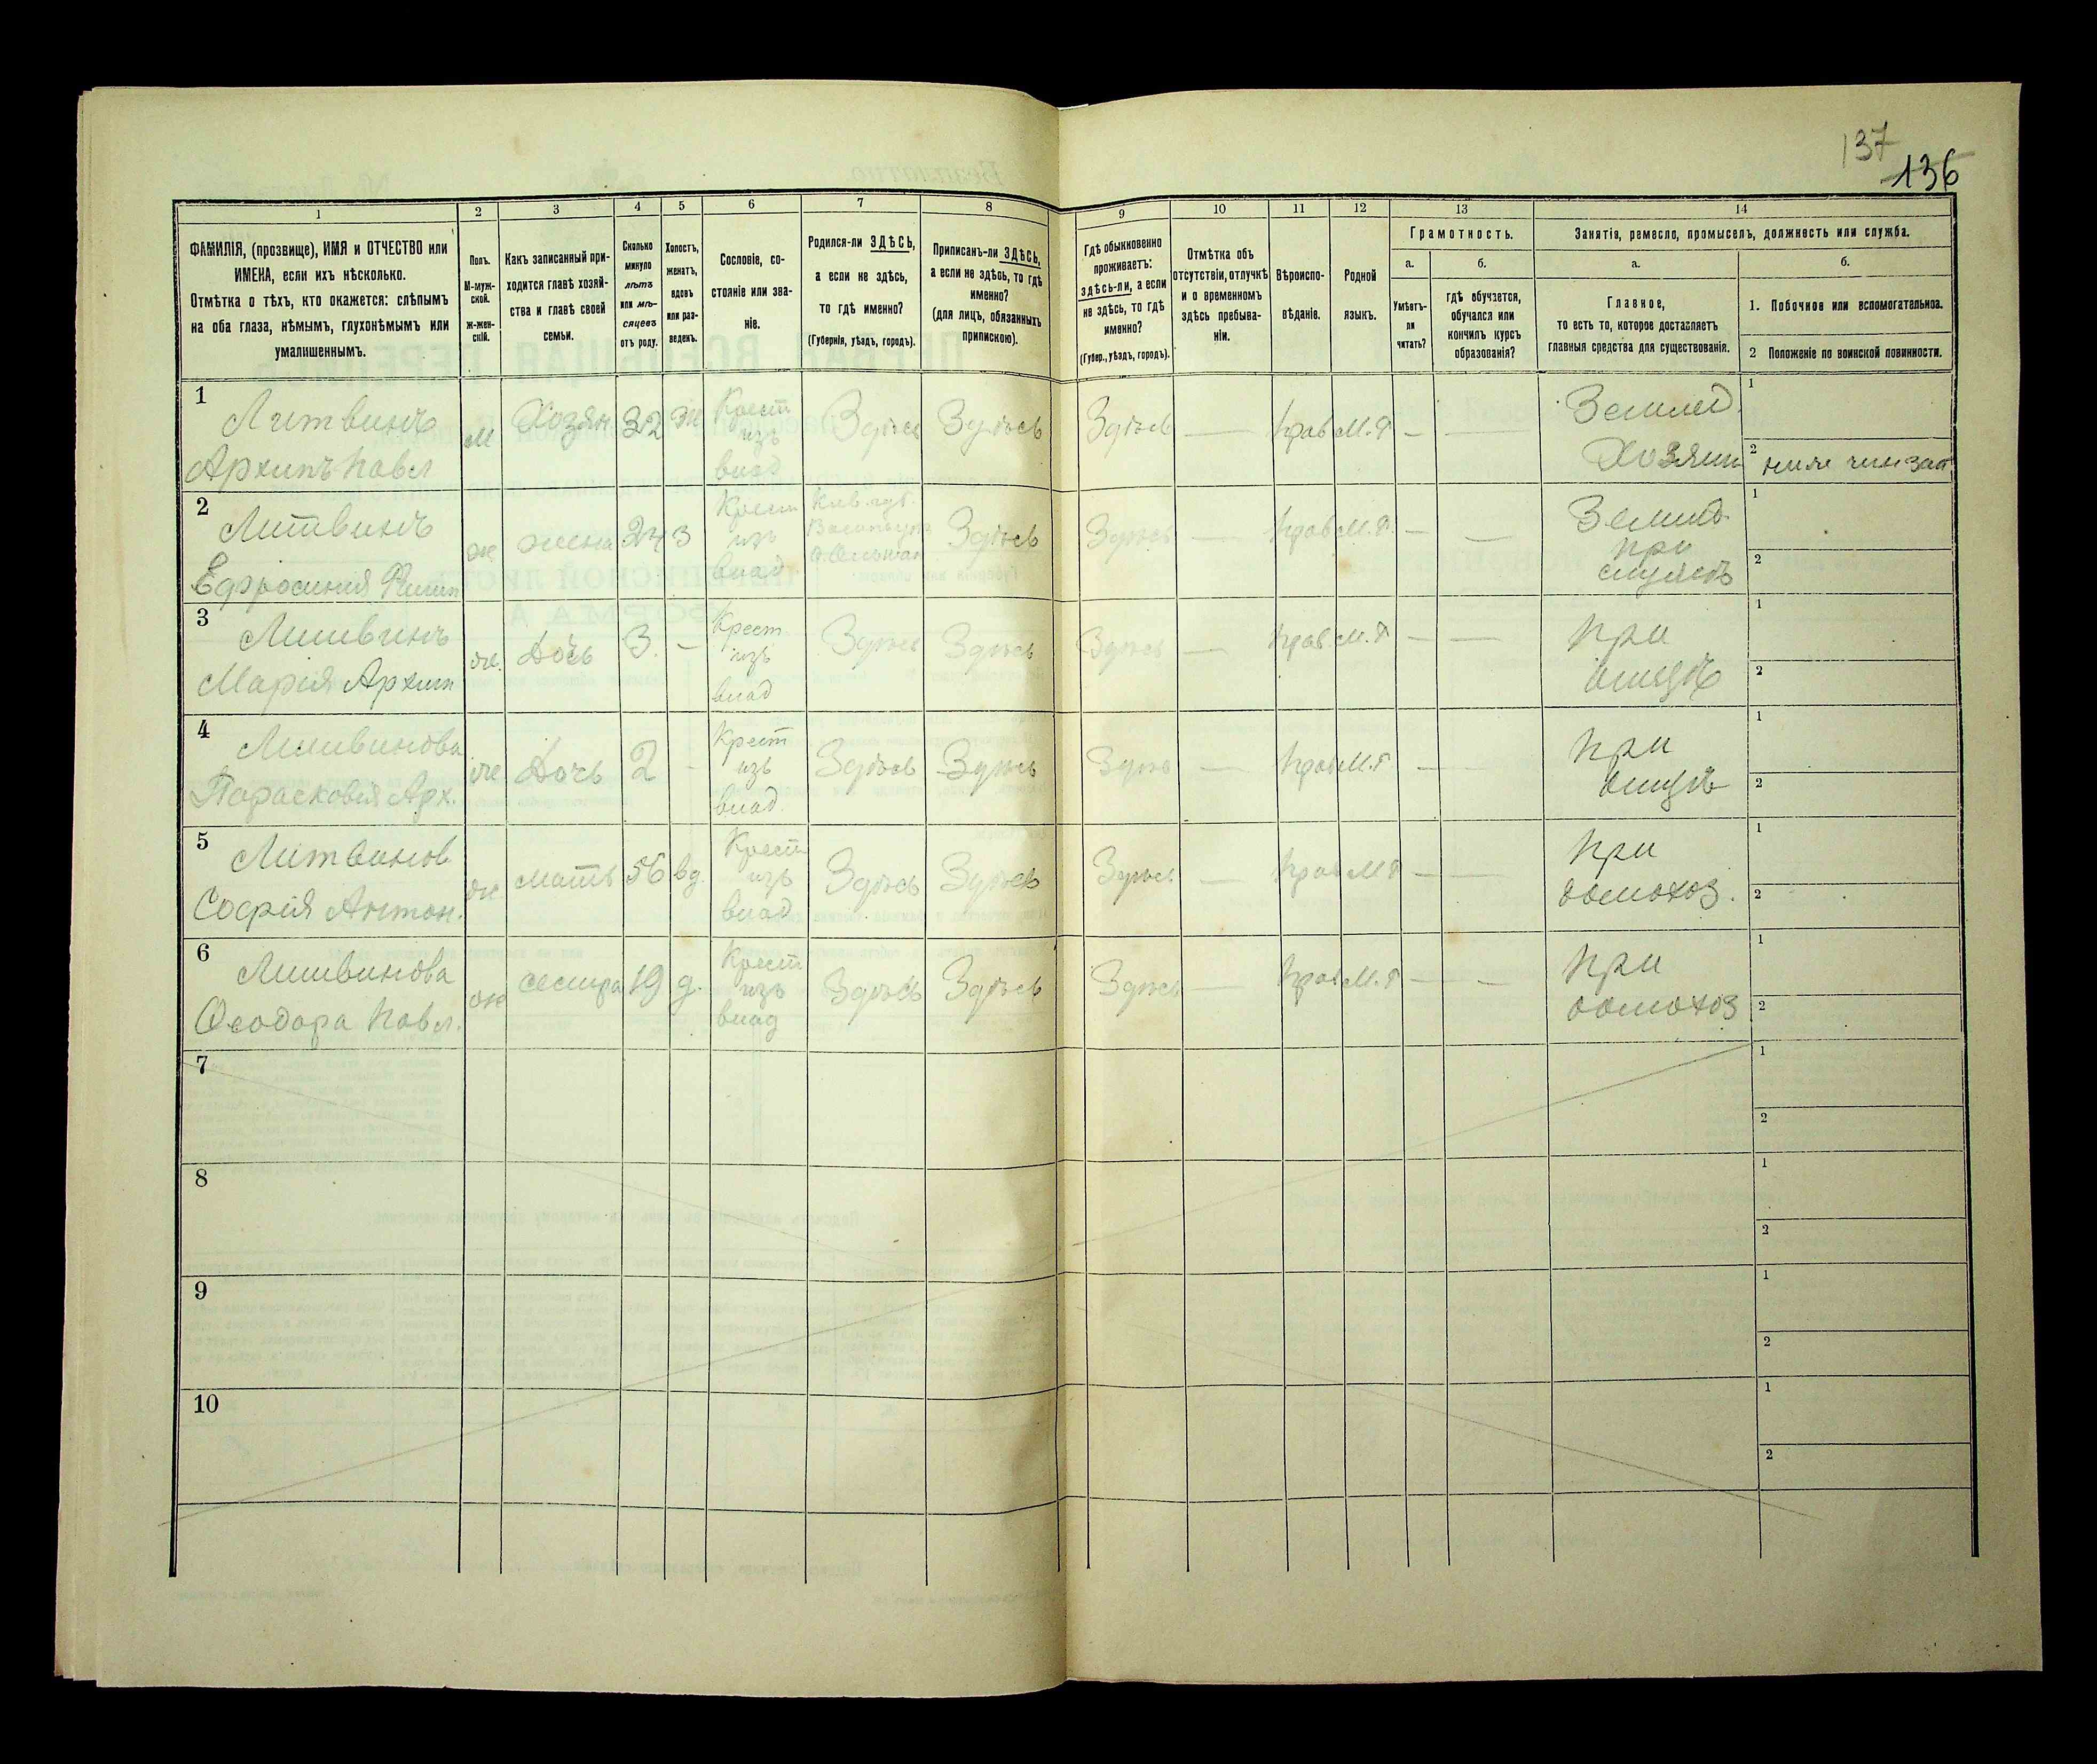 137
136
1
2
3
4
5
6
7
8
9
10
11
12
13
14
ФАМИЛІЯ, (прозвище), ИМЯ и ОТЧЕСТВО или
ИМЕНА, если ихъ нѣсколько.
Отмѣтка о тѣхъ, кто окажется: слѣпымъ
на оба глаза, нѣмымъ, глухонѣмымъ или
умалишеннымъ.
Полъ.
М-муж-
ской.
ж-жен-
скій.
Какъ записанный при-
ходится главѣ хозяй-
ства и главѣ своей
семьи.
Сколько
минуло
лѣтъ
или мѣ-
сяцевъ
отъ роду.
Холостъ,
женатъ,
вдовъ
или раз-
веденъ.
Сословіе, со-
стояніе или зва-
ніе.
Родился-ли ЗДѢСЬ,
а если не здѣсь,
то гдѣ именно?
(Губернія, уѣздъ, городъ).
Приписанъ-ли ЗДѢСЬ,
а если не здѣсь, то гдѣ
именно?
(для лицъ, обязанныхъ
припискою).
Гдѣ обыкновенно
проживаетъ:
здѣсь-ли, а если
не здѣсь, то гдѣ
именно?
(Губер., уѣздъ, городъ).
Отмѣтка объ
отсутствіи, отлучкѣ
и о временномъ
здѣсь пребыва-
ніи.
Вѣроиспо-
вѣданіе.
Родной
языкъ.
Грамотность.
а.
Умѣетъ-
ли
читать?
б.
гдѣ обучается,
обучался или
кончилъ курсъ
образованія?
Занятія, ремесло, промыселъ, должность или служба.
а.
Главное,
то есть то, которое доставляетъ
главныя средства для существованія.
б.
1. Побочное или вспомогательное.
2 Положеніе по воинской повинности.
1
Литвинъ
Архипъ Павл
м
Хозяин
32
Же
Крест
изъ
влад
Здѣсь
Здѣсь
Здѣсь
—
прав
М.Р
—
—
Землед.
Хозяин
1
2
2
Литвинъ
Ефросинія Филип
ж
жена
24
з
Крест
изъ
влад
Киев. губ.
Здѣсь
Здѣсь
—
прав
М.Р.
—
—
Землед.
при
мужѣ
1
2
3
Литвинъ
Марія Архип
ж.
Дочь
3.
—
Крест
изъ
влад
Здѣсь
Здѣсь
Здѣсь
—
прав.
М.Р
—
—
при
отцѣ
1
2
4
Литвинова
Парасковія Арх.
ж
Дочь
2
-
Крест
изъ
влад.
Здѣсь
Здѣсь
Здѣсь
—
прав
М.Р
—
—
при
отцѣ
1
2
5
Литвинов
Софія Антон.
ж
мать
56
вд.
Крест
изъ
влад
Здѣсь
Здѣсь
Здѣсь
—
прав
М Р
—
—
при
домохоз.
1
2
6
Литвинова
Ѳеодора Павл.
ж
сестра
19
д.
Крест
изъ
влад
Здѣсь
Здѣсь
Здѣсь
—
прав
М.Р
—
—
при
домохоз
1
2
7
1
2
8
1
2
9
1
2
10
1
2